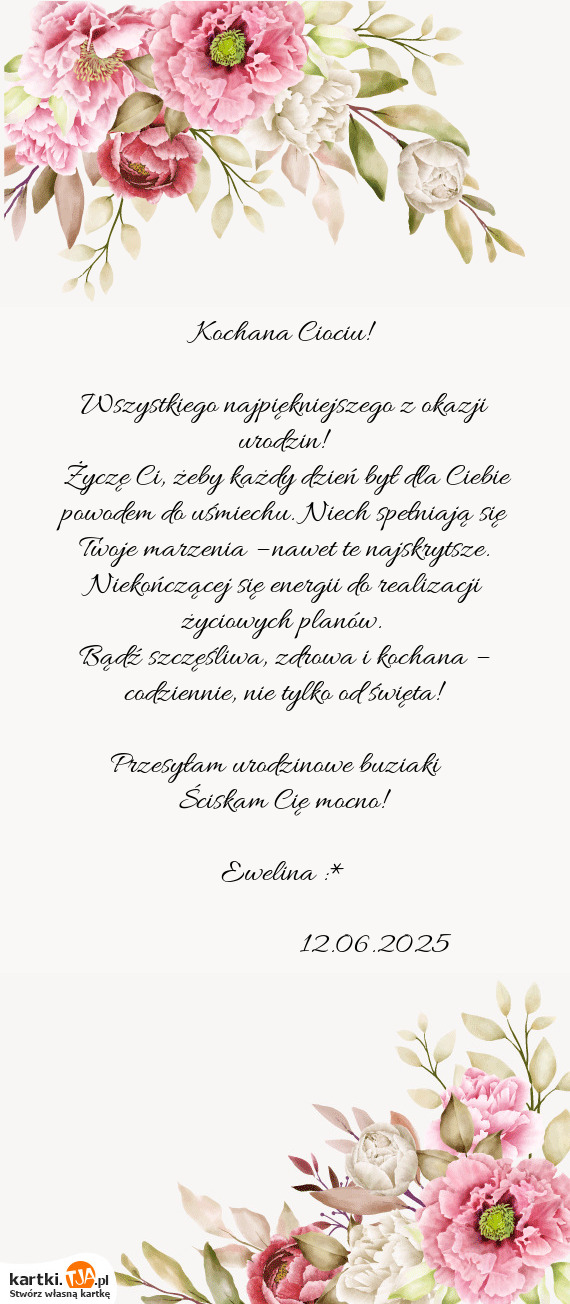 Kochana Ciociu!
Wszystkiego najpiękniejszego z okazji
urodzin!
Życzę Ci, żeby każdy dzień był dla Ciebie
powodem do uśmiechu. Niech spełniają się
Twoje marzenia –nawet te najskrytsze.
Niekończącej się energii do realizacji
życiowych planów.
Bądź szczęśliwa, zdrowa i kochana –
codziennie, nie tylko od święta!
Przesyłam urodzinowe buziaki
Ściskam Cię mocno!
Ewelina :*
12.06.2025
kartki.TJA.pl
Stwórz własną kartkę